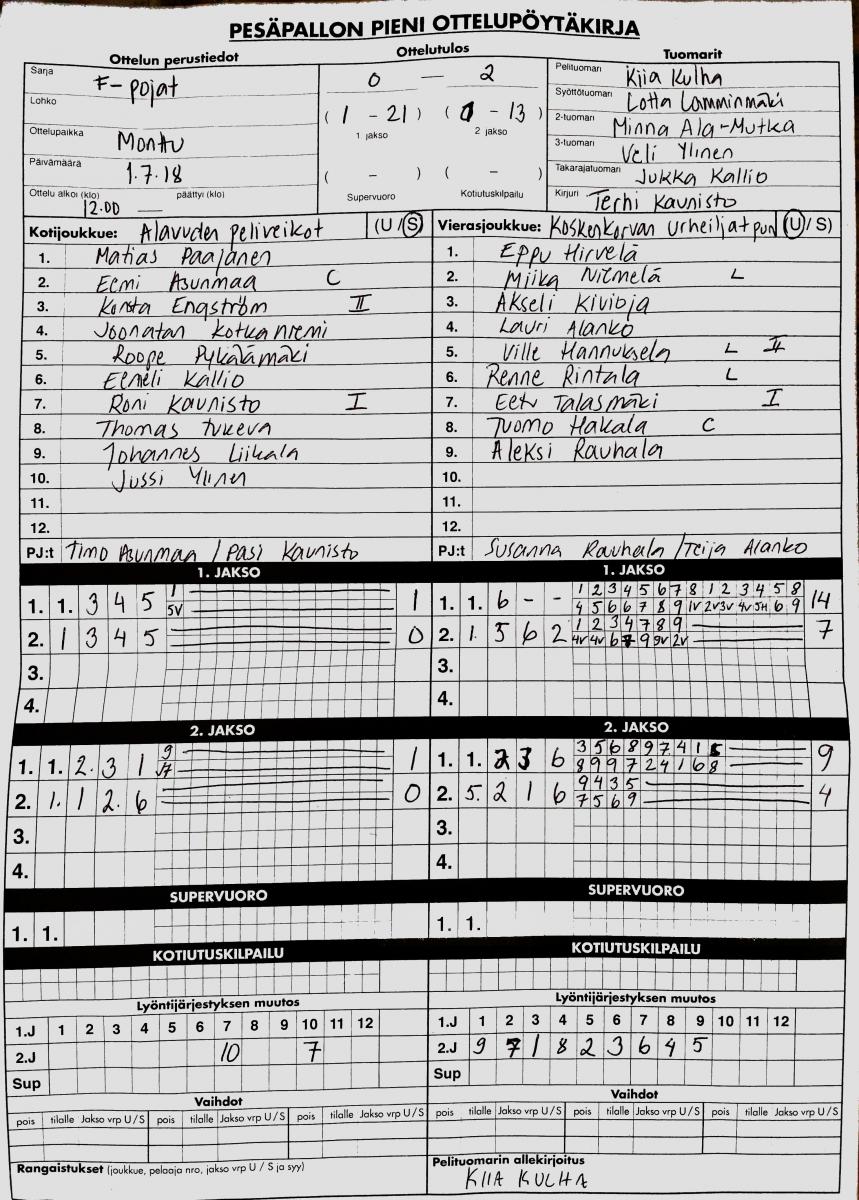 PESÄPALLON PIENI OTTELUPÖYTÄKIRJA
Ottelun perustiedot
Sarja F-pojat
Lohko
Ottelupaikka Monttu
Päivämäärä 1.7.18
Ottelu alkoi (klo) 12.00 — päättyi (klo)
Ottelutulos
0 — 2
( 1 - 21 ) ( 1 - 13 )
1 jakso 2 jakso
( - ) ( - )
Supervuoro Kotiutuskilpailu
Tuomarit
Pelituomari Kiia Kulha
Syöttötuomari Lotta Lamminmäki
2-tuomari Minna Ala-Mutka
3-tuomari Veli Ylinen
Takarajatuomari Jukka Kallio
Kirjuri Terhi Kaunisto
Kotijoukkue: Alavuden peliveikot (U / S)
1. Matias Paajanen
2. Eemi Asunmaa C
3. Konsta Engström II
4. Joonatan Kotkaniemi
5. Roope Pykälämäki
6. Eemeli Kallio
7. Roni Kaunisto I
8. Thomas Tukeva
9. Johannes Liikala
10. Jussi Ylinen
11.
12.
PJ:t Timo Asunmaa / Pasi Kaunisto
Vierasjoukkue: Koskenkorvan urheilijat pun (U / S)
1. Eppu Hirvelä
2. Miika Niemelä L
3. Akseli Kivioja
4. Lauri Alanko
5. Ville Hannuksela L II
6. Renne Rintala L
7. Eetu Talasmäki I
8. Tuomo Hakala C
9. Aleksi Rauhala
10.
11.
12.
PJ:t Susanna Rauhala / Teija Alanko
1. JAKSO
1. 1. 3 4 5 1 1
5V
2. 1 3 4 5 0
3.
4.
1. JAKSO
1. 1. 6 - - 1 2 3 4 5 6 7 8 1 2 3 4 5 8 14
4 5 6 6 7 8 9 1V 2V 3V 4V 5H 6 9
2. 1. 5 6 2 1 2 3 4 7 8 9 7
4V 4V 6 7 9 9V 2V
3.
4.
2. JAKSO
1. 1. 2. 3 1 9 1
7
2. 1. 1 2. 6 0
3.
4.
2. JAKSO
1. 1. 2 3 6 3 5 6 8 9 7 4 1 5 9
8 9 9 7 2 4 1 6 8
2. 5. 2 1 6 9 4 3 5 4
7 5 6 9
3.
4.
SUPERVUORO
1. 1.
SUPERVUORO
1. 1.
KOTIUTUSKILPAILU
KOTIUTUSKILPAILU
Lyöntijärjestyksen muutos
1.J 1 2 3 4 5 6 7 8 9 10 11 12
2.J 10 7
Sup
Lyöntijärjestyksen muutos
1.J 1 2 3 4 5 6 7 8 9 10 11 12
2.J 9 7 1 8 2 3 6 4 5
Sup
Vaihdot
pois tilalle Jakso vrp U / S pois tilalle Jakso vrp U / S pois tilalle Jakso vrp U / S
Vaihdot
pois tilalle Jakso vrp U / S pois tilalle Jakso vrp U / S pois tilalle Jakso vrp U / S
Rangaistukset (joukkue, pelaaja nro, jakso vrp U / S ja syy)
Pelituomarin allekirjoitus
KIIA KULHA